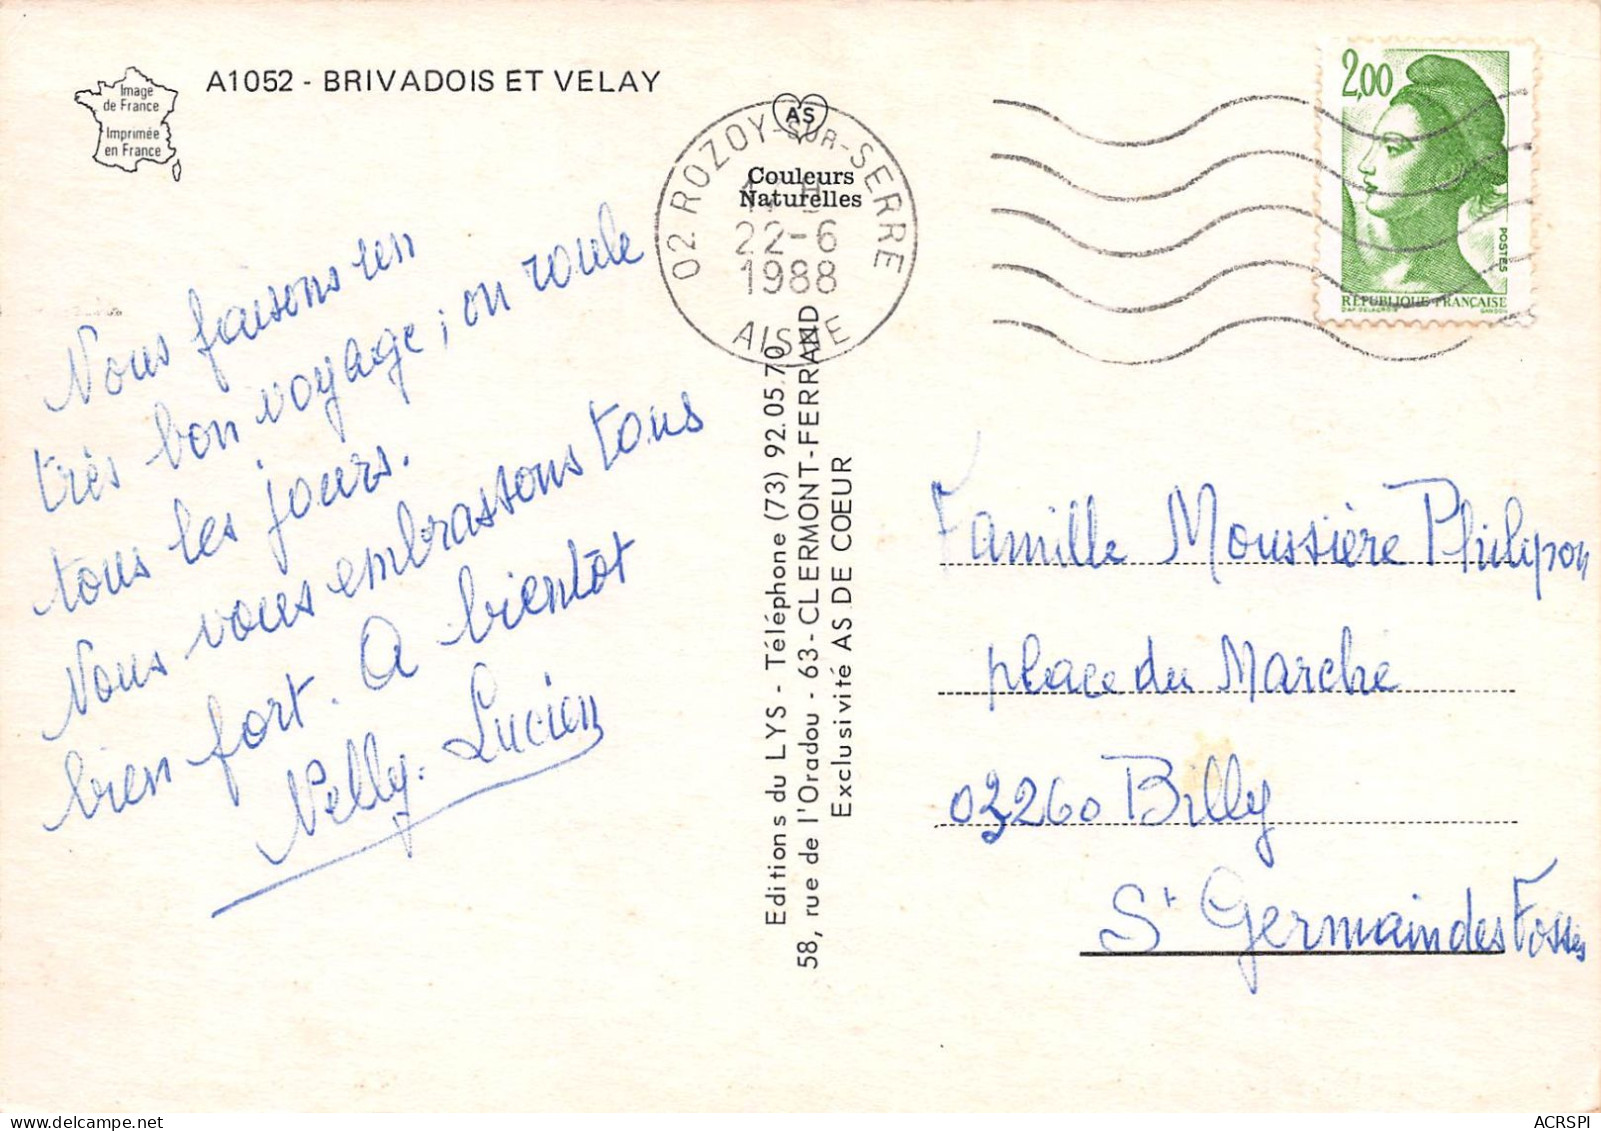 Image
de France
Imprimée
en France
A1052 - BRIVADOIS ET VELAY
AS
Couleurs
Naturelles
02 ROZOY-SUR-SERRE
22-6
1988
AISNE
2,00
POSTES
RÉPUBLIQUE FRANÇAISE
D'AP. DELACROIX
GANDON
Nous faisons un
très bon voyage; on roule
tous les jours.
Nous vous embrassons tous
bien fort. A bientôt
Nelly. Lucien
Editions du LYS - Téléphone (73) 92.05.70
58, rue de l'Oradou - 63 - CLERMONT-FERRAND
Exclusivité AS DE COEUR
Famille Moussière Philipon
place du Marche
03260 Billy
St Germain des Fossés
ACRSPI